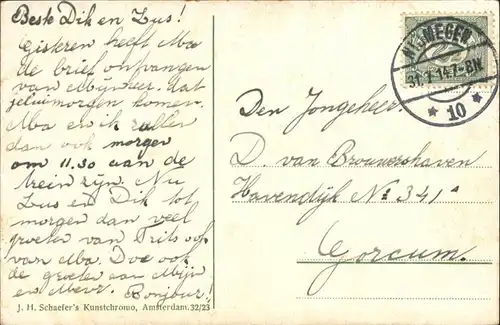 Beste Dik en Zus!
Gisteren heeft Ma
de brief ontvangen
van Mijnheer, dat
jelui morgen komen.
Ma en ik zullen
dan ook morgen
om 11.30 aan de
trein zijn. Nu
Zus en Dik tot
morgen dan veel
groeten van Frits ook
van Ma. Doe ook
de groeten aan Mijn
en Mevr. Bonjour!
J. H. Schaefer's Kunstchromo, Amsterdam. 32/23
NIJMEGEN
31.7.14 7-8N
* 10 *
Den Jongeheer
D. van Brouwershaven
Havendijk No 341a
Gorcum.